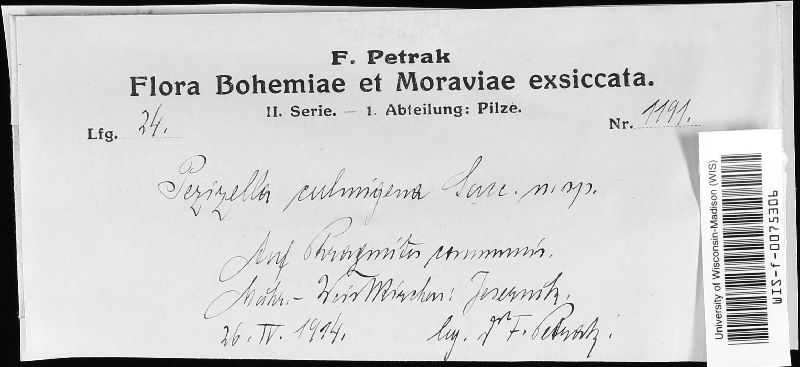 F. Petrak
Flora Bohemiae et Moraviae exsiccata.
II. Serie. — 1. Abteilung: Pilze.
Lfg. 24.
Nr. 1191.
Pezizella culmigena Sacc. n. sp.
Auf Phragmites communis.
Mähr.-Weisskirchen: Jesernitz.
26. IV. 1914. leg. Dr F. Petrak.
University of Wisconsin-Madison (WIS)
WIS-f-0075306